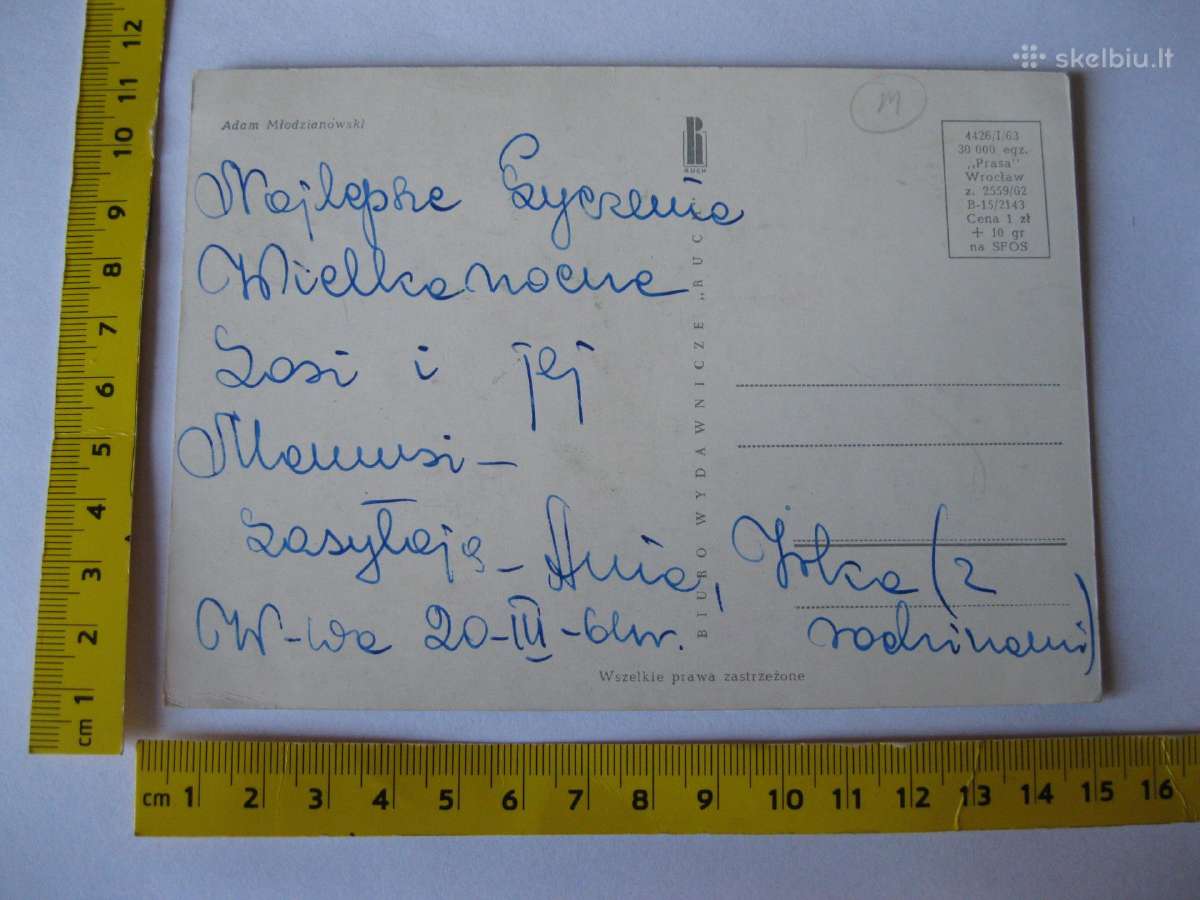 skelbiu.lt
Adam Młodzianowski
M
RUCH
4426/I/63
30 000 egz.
„Prasa"
Wrocław
z. 2559/62
B-15/2143
Cena 1 zł
+ 10 gr
na SFOS
Najlepsze Życzenia
Wielkanocne
Zosi i jej
Mamusi –
zasyłają – Ania,
W-wa 20-III-64r.
(z
rodzinami)
BIURO WYDAWNICZE „RUC
Wszelkie prawa zastrzeżone
12
11
10
9
8
7
6
5
4
3
2
1
cm
cm 1 2 3 4 5 6 7 8 9 10 11 12 13 14 15 16